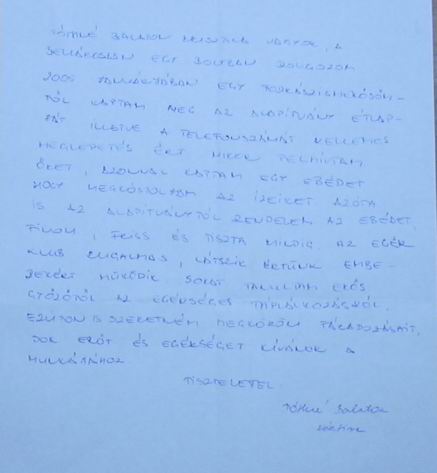 TÓTHNÉ BALATON KRISZTINA VAGYOK, A
BELVÁROSBAN EGY BOLTBAN DOLGOZOM
2005 JANUÁRJÁBAN EGY TORNÁSZISMERŐSÖM-
TŐL KAPTAM MEG AZ ALAPÍTVÁNY ÉTLAP-
JÁT ILLETVE A TELEFONSZÁMÁT KELLEMES
MEGLEPETÉS ÉRT MIKOR FELHÍVTAM
ŐKET, AZONNAL KAPTAM EGY EBÉDET
HOGY MEGKÓSTOLJAM AZ ÍZEIKET AZÓTA
IS AZ ALAPÍTVÁNYTÓL RENDELEM AZ EBÉDET.
FINOM, FRISS ÉS TISZTA MINDIG. AZ EGÉR
KLUB RUGALMAS, LÁTSZIK ÉRTÜNK EMBE-
REKÉRT MŰKÖDIK. SOKAT TANULTAM ERŐS
GYŐZŐTŐL AZ EGÉSZSÉGES TÁPLÁLKOZÁSRÓL.
EZÚTON IS SZERETNÉM MEGKÖSZÖNI FÁRADOZÁSAIT,
SOK ERŐT ÉS EGÉSZSÉGET KÍVÁNOK A
MUNKÁJÁHOZ.
TISZTELETTEL:
Tóthné